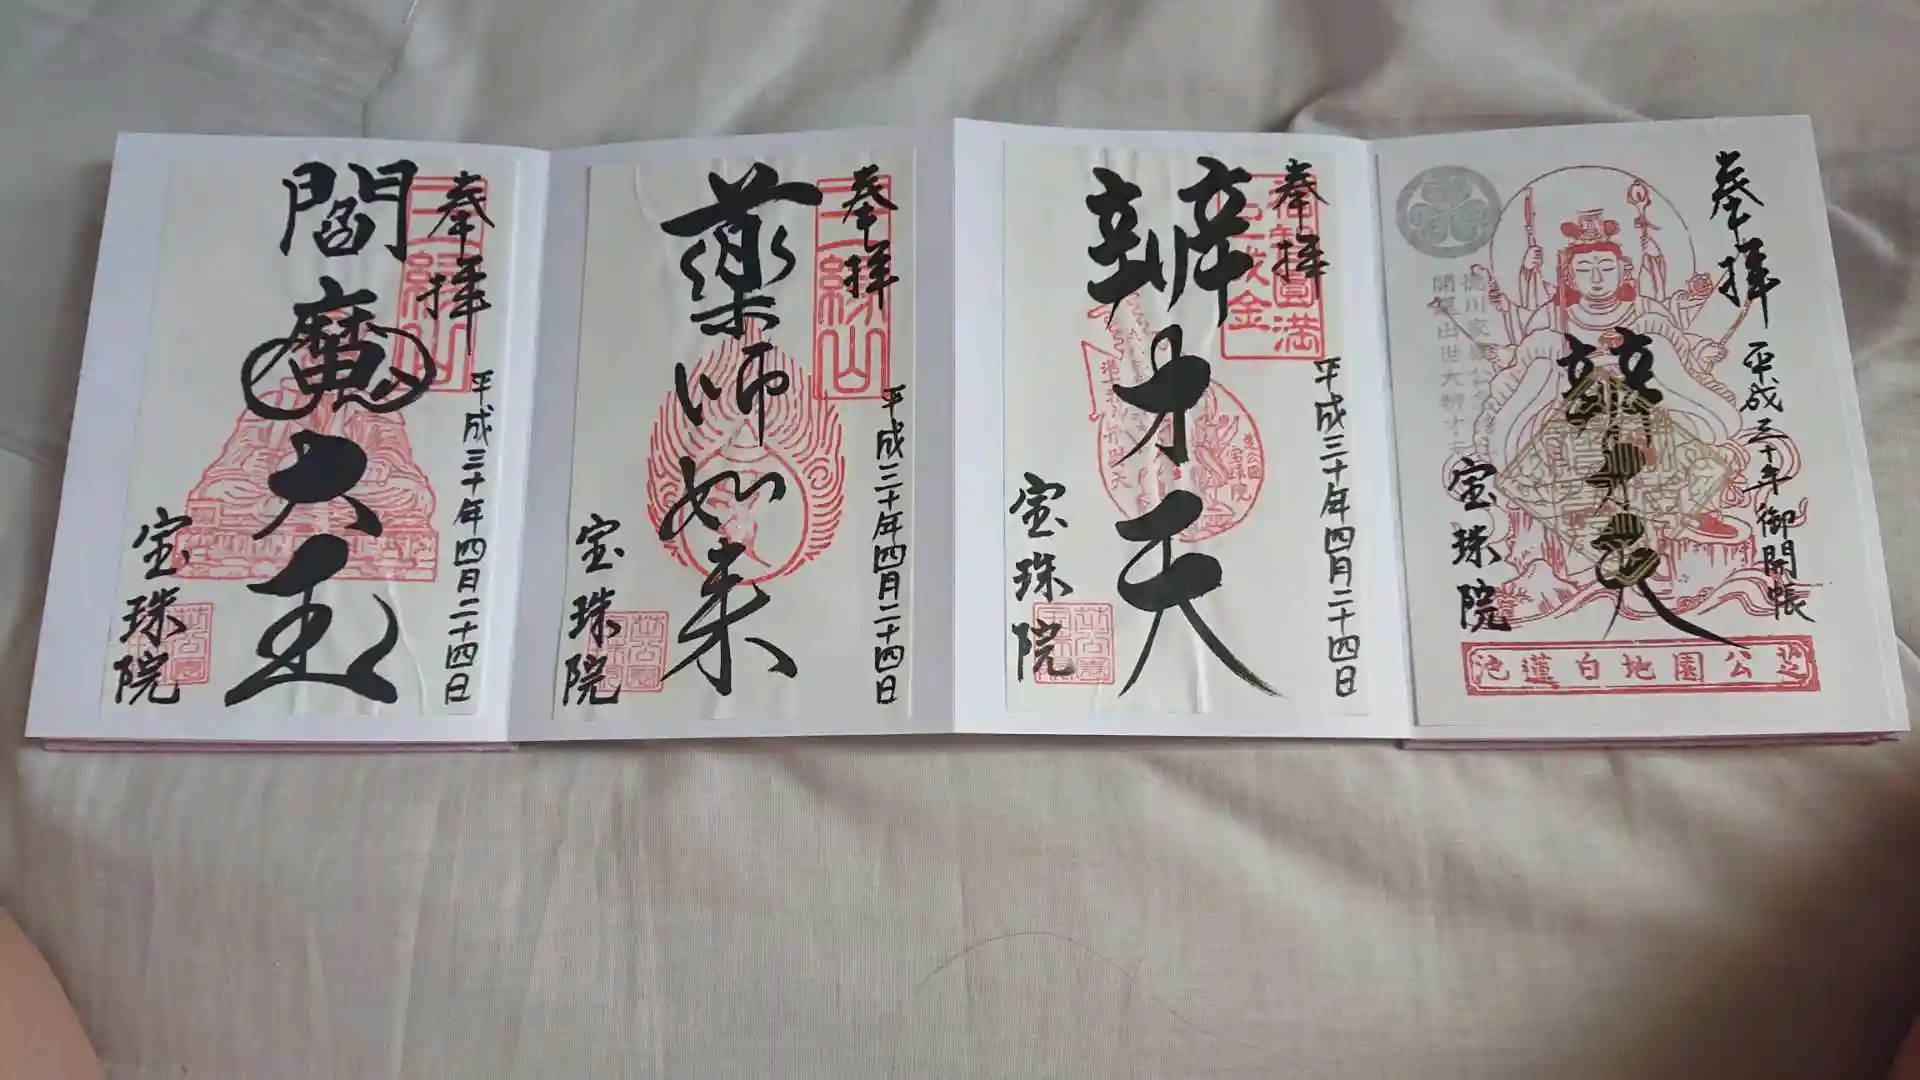 奉拝
平成三十年 御開帳
辨才天
宝珠院
開運出世大辨才天
芝公園地白蓮池
奉拝
平成三十年四月二十四日
辨才天
宝珠院
奉拝
平成三十年四月二十四日
薬師如来
宝珠院
三縁山
奉拝
平成三十年四月二十四日
閻魔大王
宝珠院
三縁山